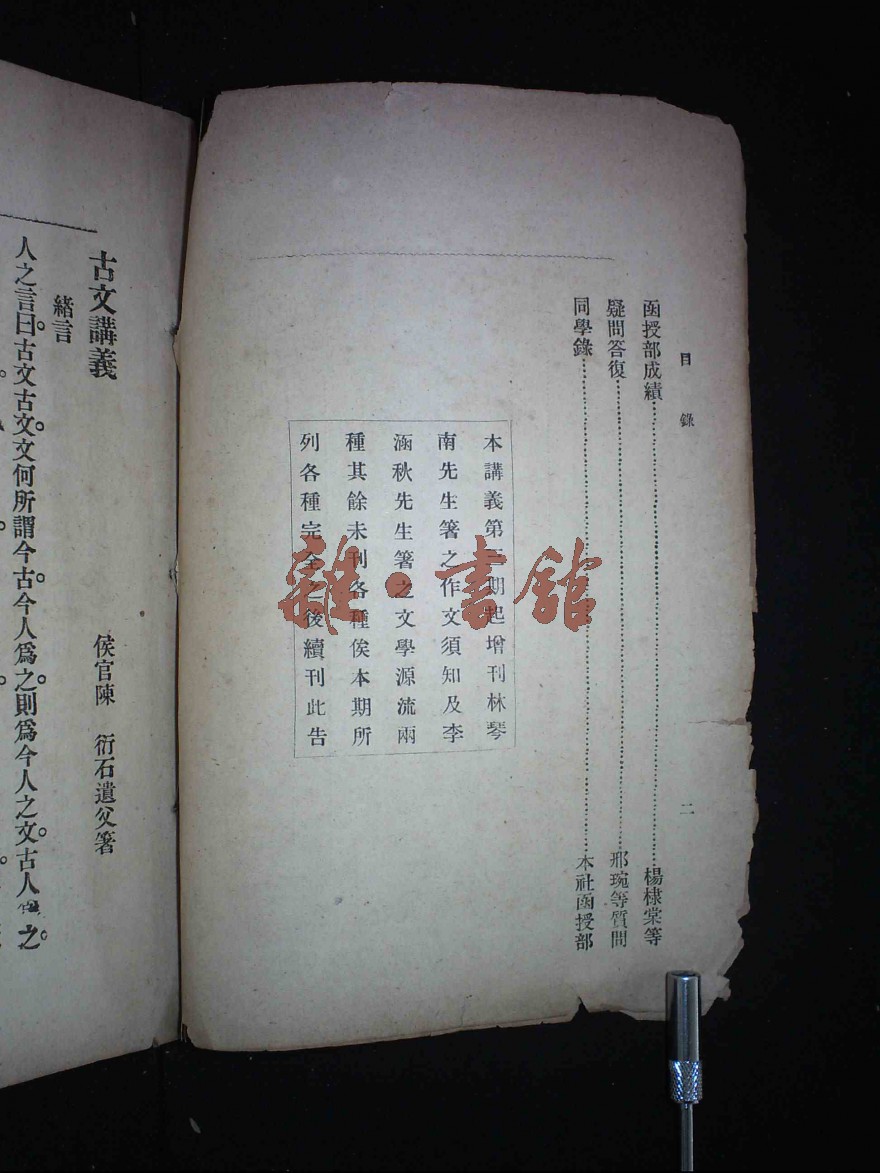 目錄
二
函授部成績……楊棣棠等
疑問答復……邢琬等質問
同學錄……本社函授部
本講義第二期起增刊林琴
南先生箸之作文須知及李
涵秋先生箸之文學源流兩
種其餘未刊各種俟本期所
列各種完全之後續刊此告
雜·書館
古文講義
侯官陳 衍石遺父箸
緒言
人之言曰。古文古文。文何所謂今古。今人爲之。則爲今人之文。古人爲之。